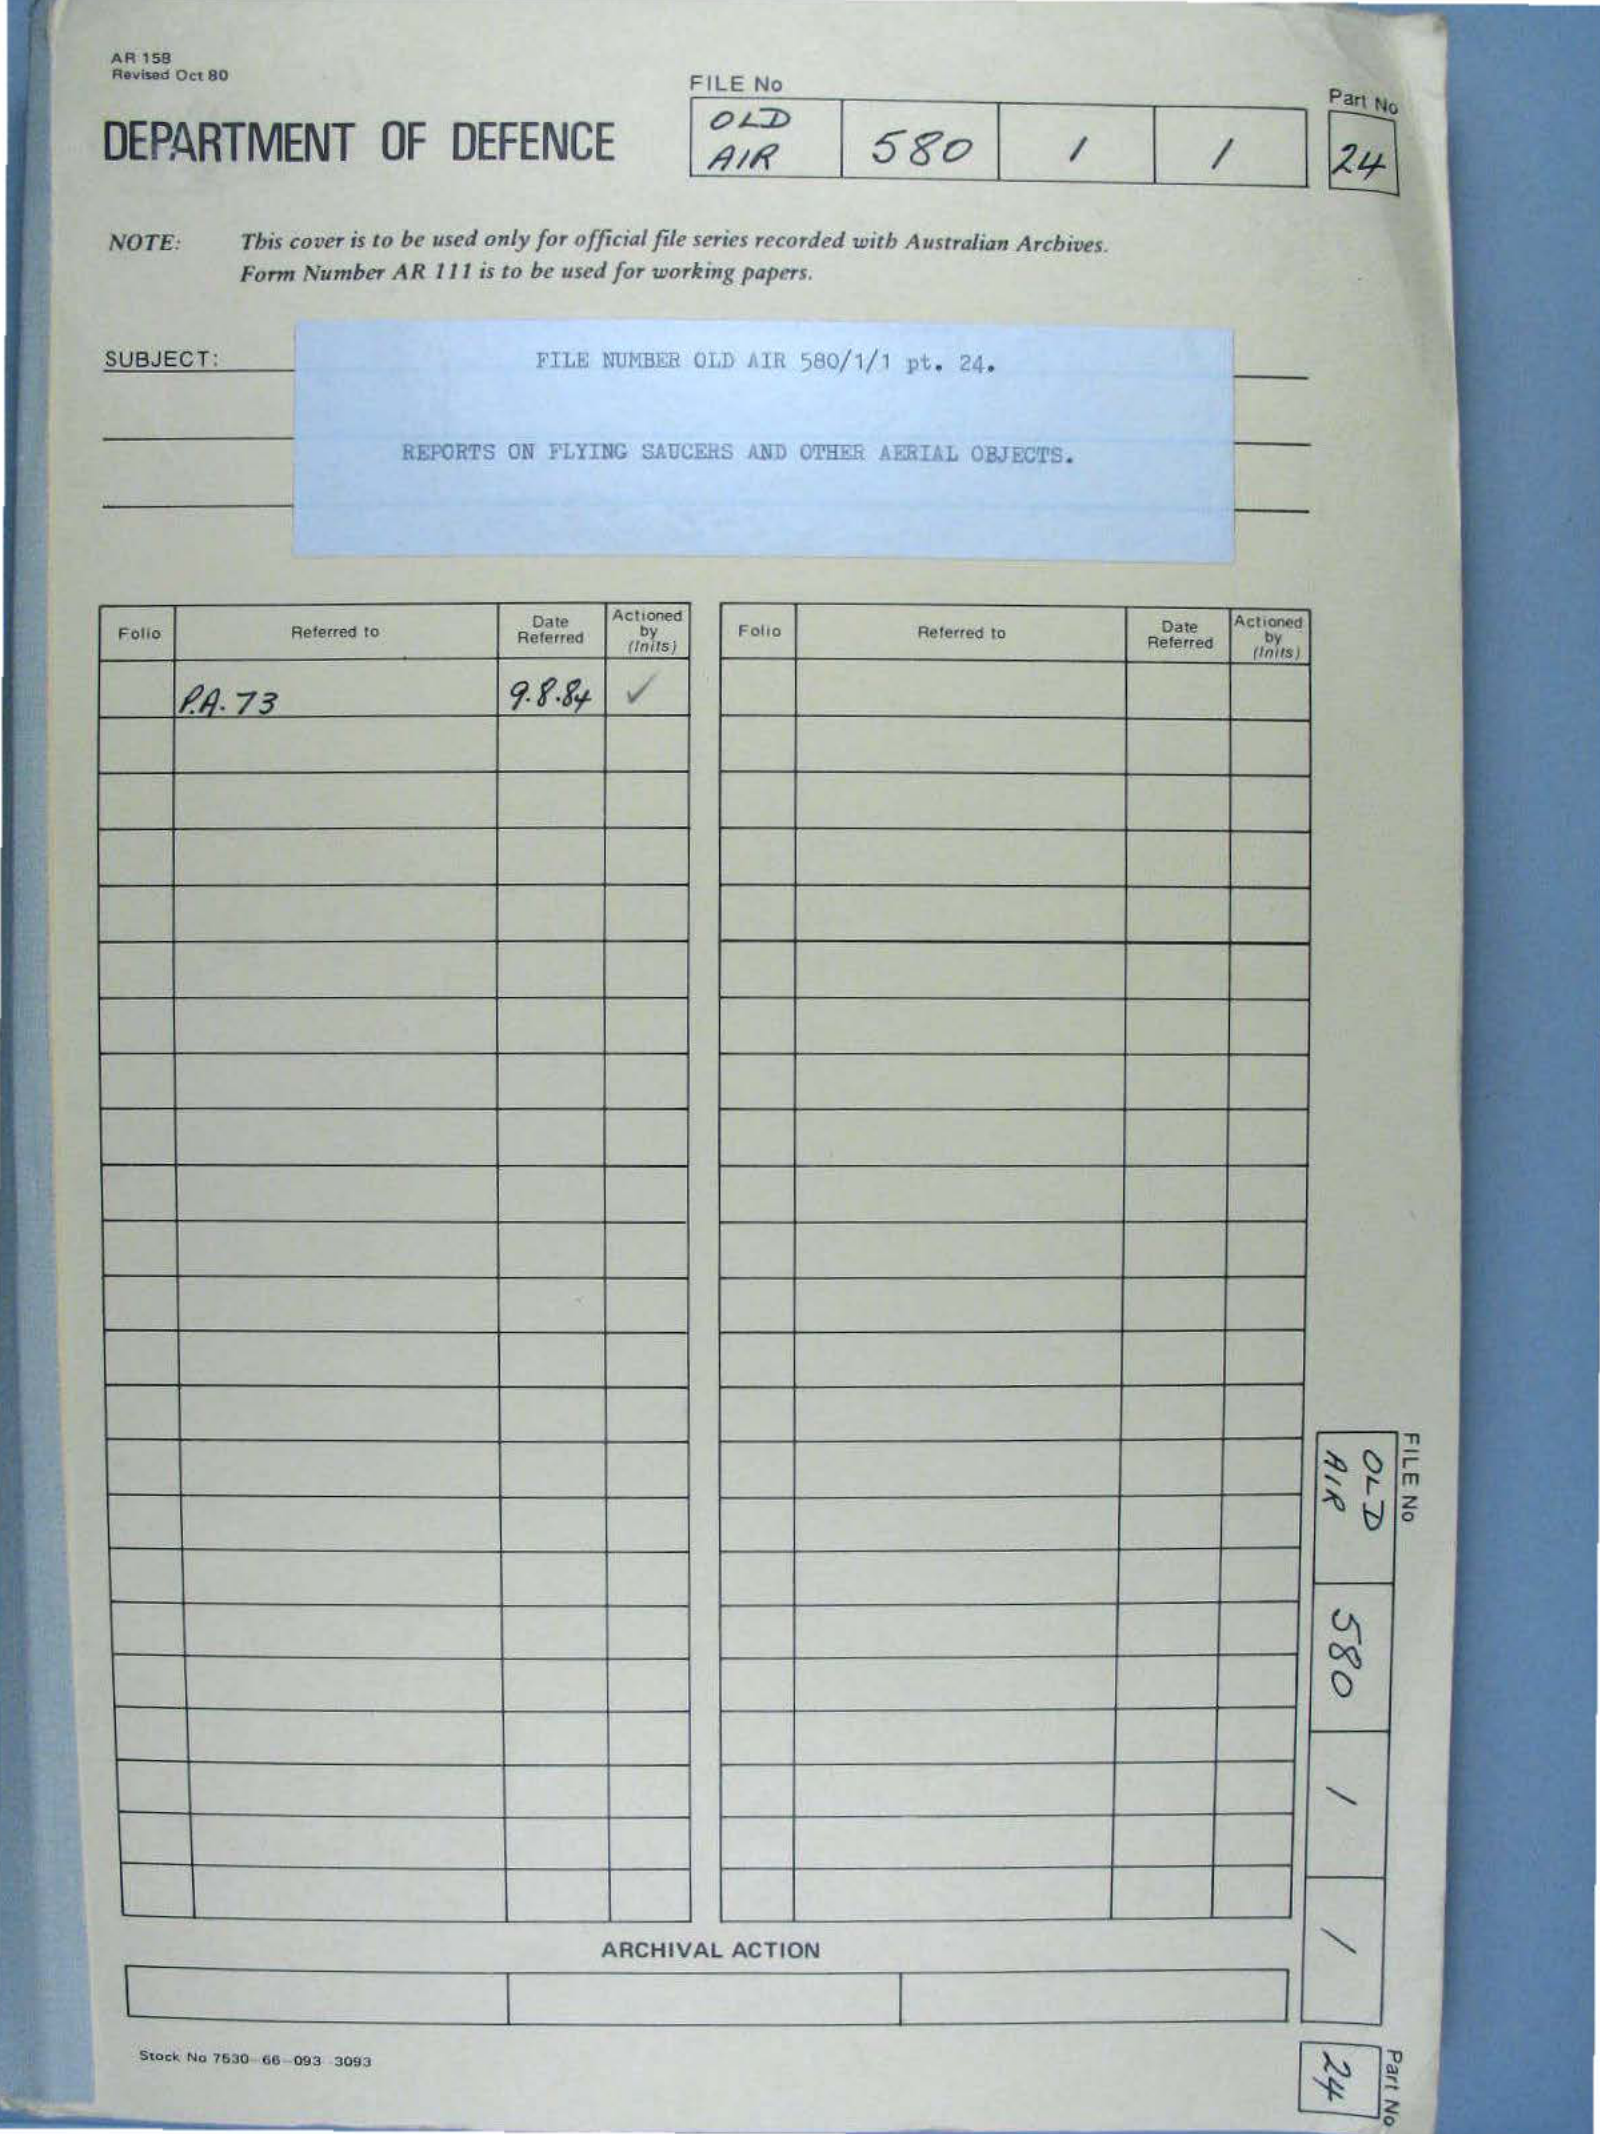 AR 158
Revised Oct 80
DEPARTMENT OF DEFENCE
FILE No
OLD AIR 580 1 1
Part No
24
NOTE: This cover is to be used only for official file series recorded with Australian Archives.
Form Number AR 111 is to be used for working papers.
SUBJECT:
FILE NUMBER OLD AIR 580/1/1 pt. 24.
REPORTS ON FLYING SAUCERS AND OTHER AERIAL OBJECTS.
Folio Referred to Date Referred Actioned by (Inits) Folio Referred to Date Referred Actioned by (Inits)
P.A. 73 9.8.84 ✓
FILE No
OLD AIR 580 1 1
Part No
24
ARCHIVAL ACTION
Stock No 7530-66-093-3093